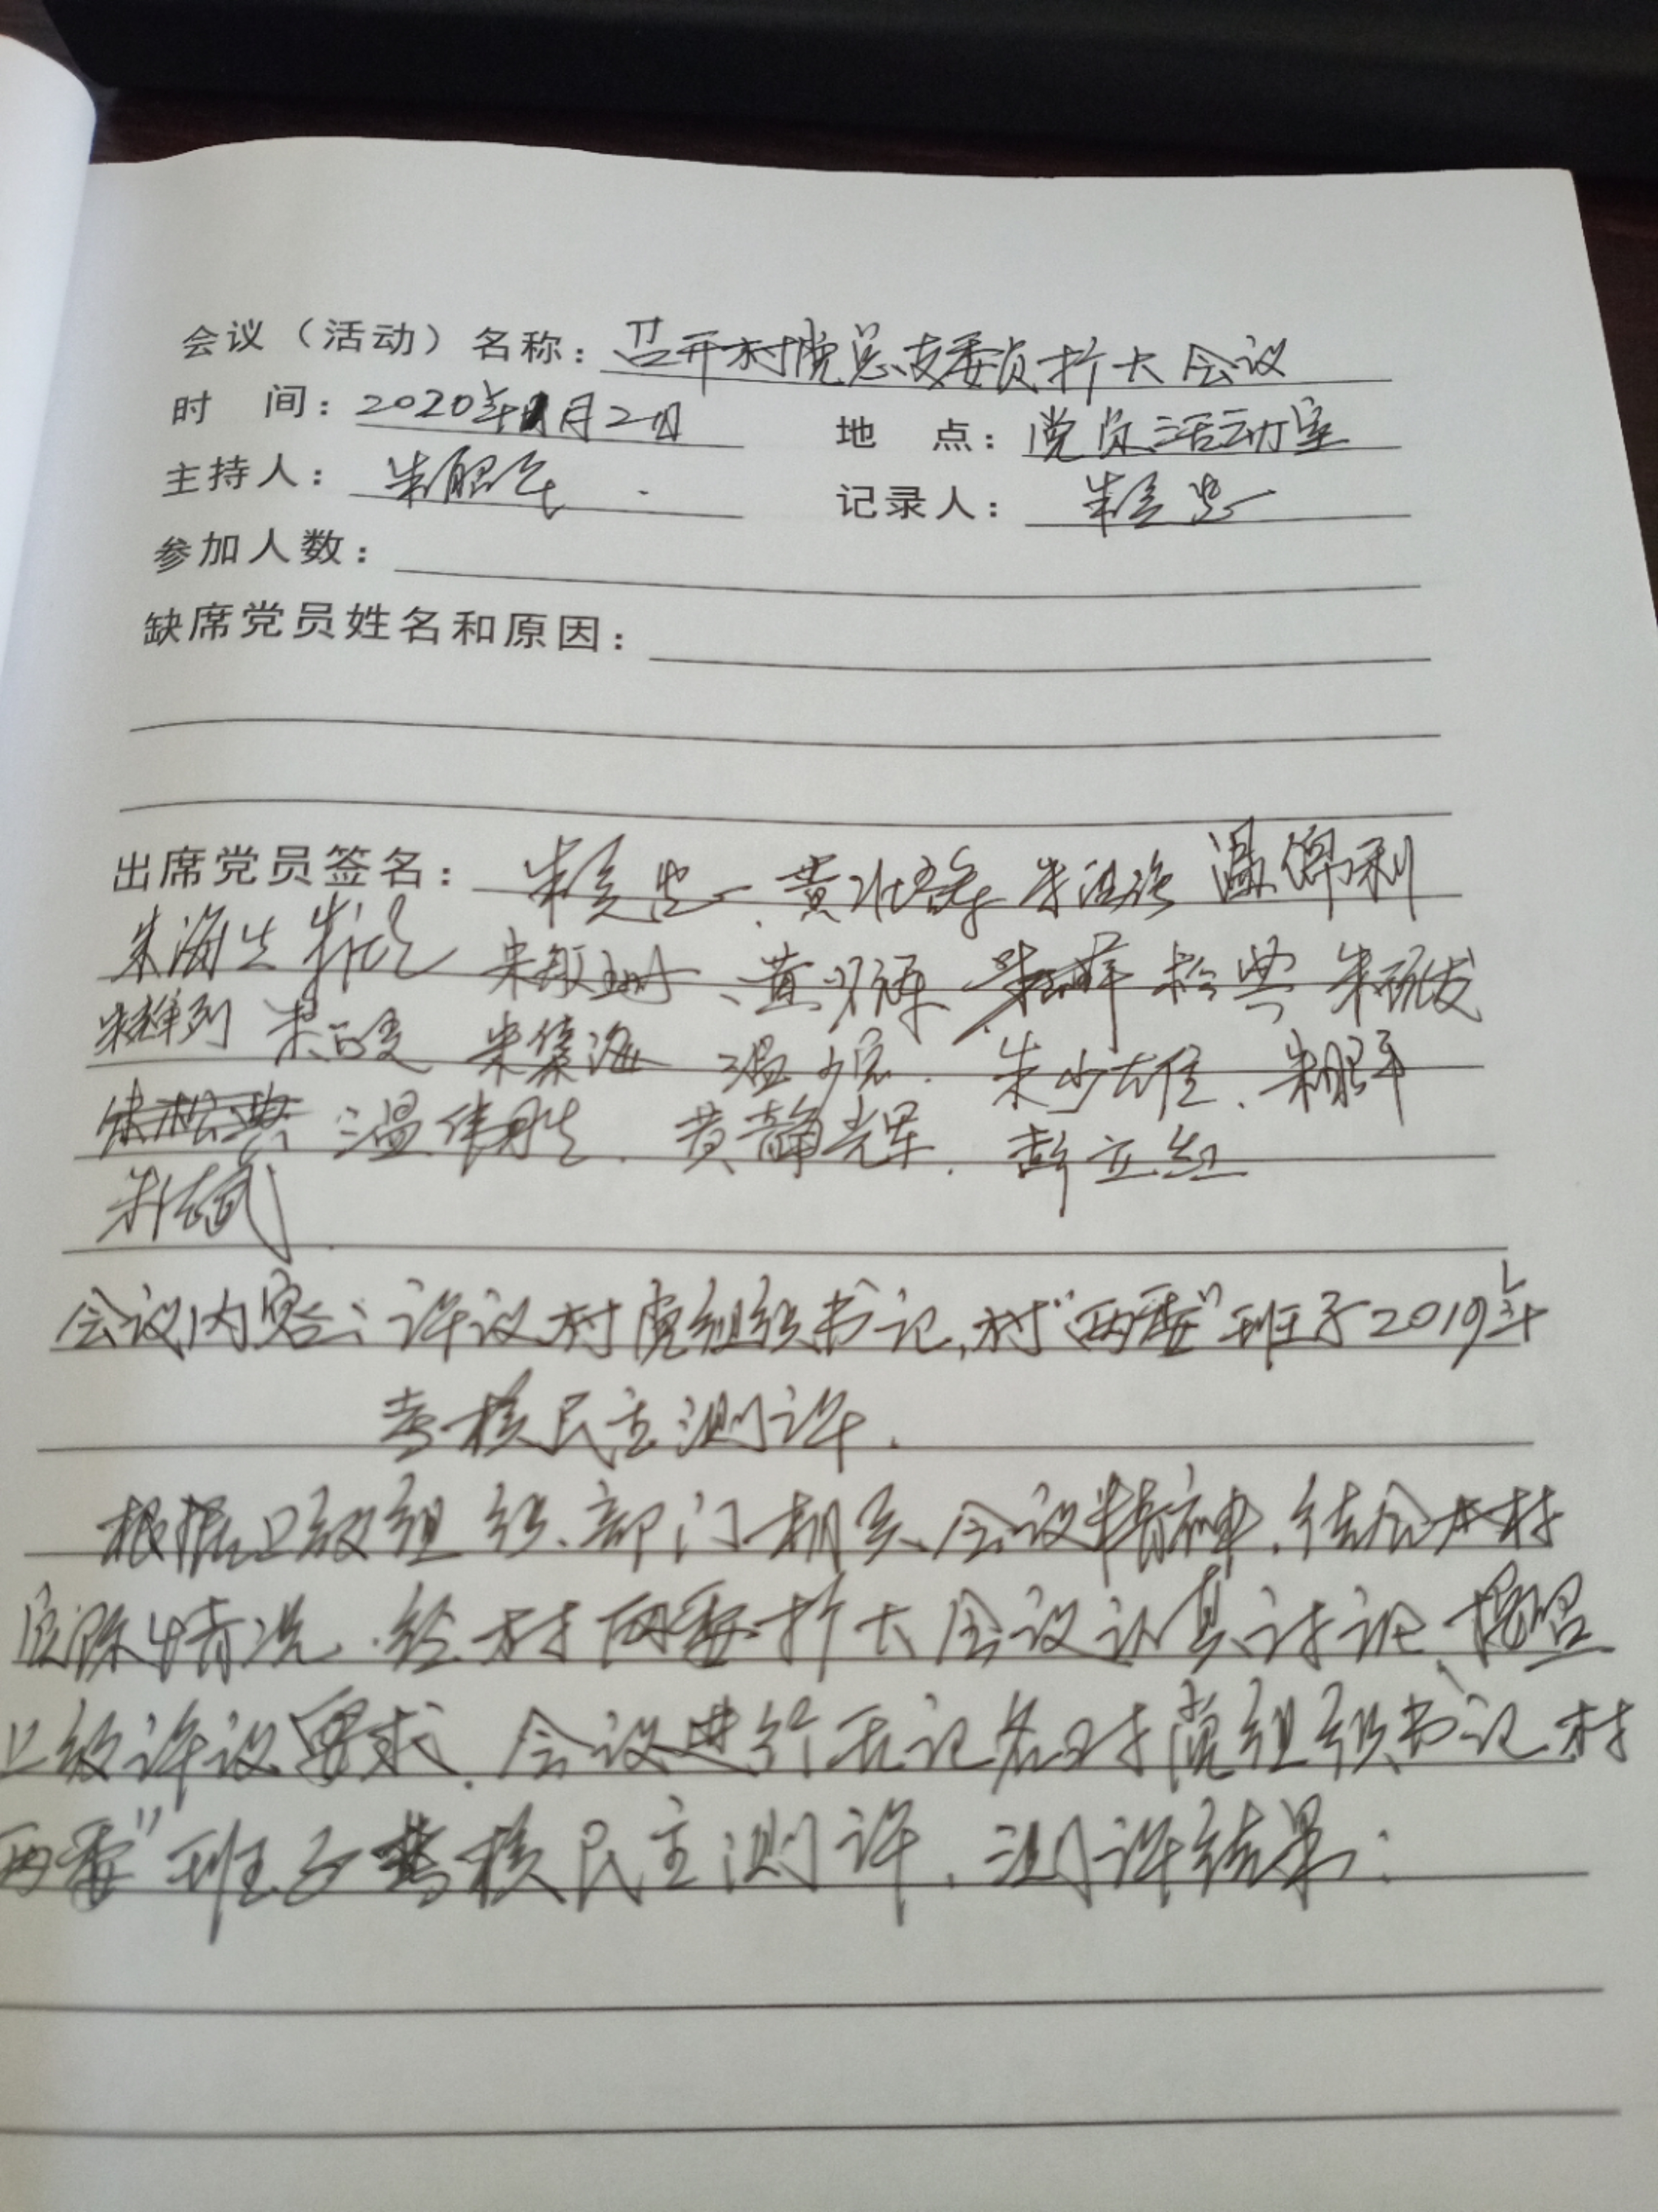 会议（活动）名称：召开村党总支委员扩大会议
时 间：2020年1月2日 地 点：党员活动室
主持人：朱 记录人：朱
参加人数：
缺席党员姓名和原因：
出席党员签名：朱 黄 朱 温
朱海生 朱 朱敏珊、黄 朱 松典 朱
朱 朱 朱集海 温 朱少雄、朱
温伟胜、黄静辉、彭立红
朱志武
会议内容：评议村党组织书记，村“两委”班子2019年
考核民主测评．
根据上级组织、部门相关会议精神，结合本村
实际情况，经村两委扩大会议认真讨论，按照
上级评议要求，会议进行无记名对党组织书记、村
两委”班子考核民主测评，测评结果：